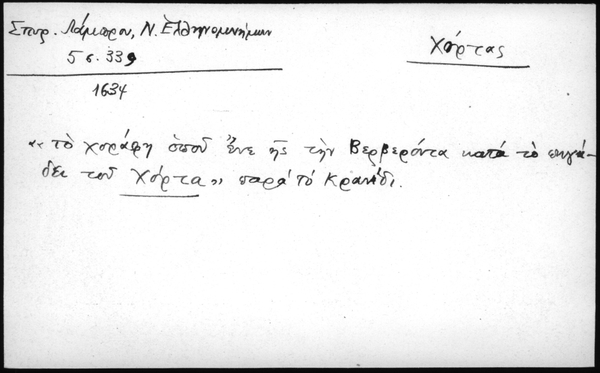 Σπυρ. Λάμπρου, Ν. Ἑλληνομνήμων
5 σ. 339
Χόρτας
1634
« τὸ χοράφη ὁποῦ ἔνε ἠς τὴν Βερβερόντα κατὰ τὸ πηγά-
δει τοῦ Χόρτα » παρὰ τὸ Κρανίδι.